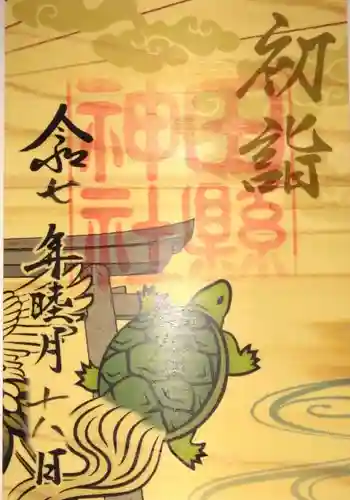 初詣
田縣
神社
令和七年睦月十八日